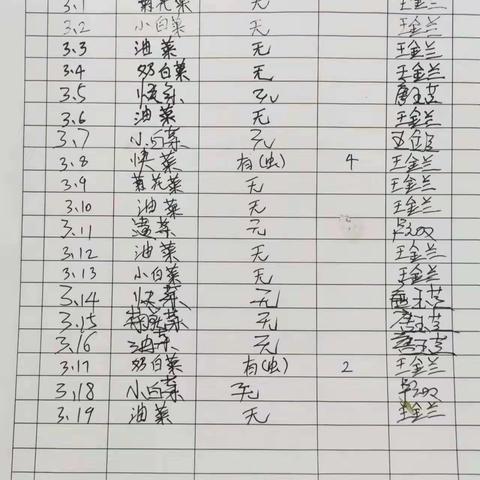 3.1 菊花菜 无 王金兰
3.2 小白菜 无 王金兰
3.3 油菜 无 王金兰
3.4 奶白菜 无 王金兰
3.5 快菜 无
3.6 油菜 无 王金兰
3.7 小白菜 无
3.8 快菜 有(虫) 4 王金兰
3.9 菊花菜 无 王金兰
3.10 油菜 无 王金兰
3.11 菜 无
3.12 油菜 无 王金兰
3.13 小白菜 无 王金兰
3.14 快菜 无
3.15 菜 无
3.16 油菜 无
3.17 奶白菜 有(虫) 2 王金兰
3.18 小白菜 无
3.19 油菜 无 王金兰